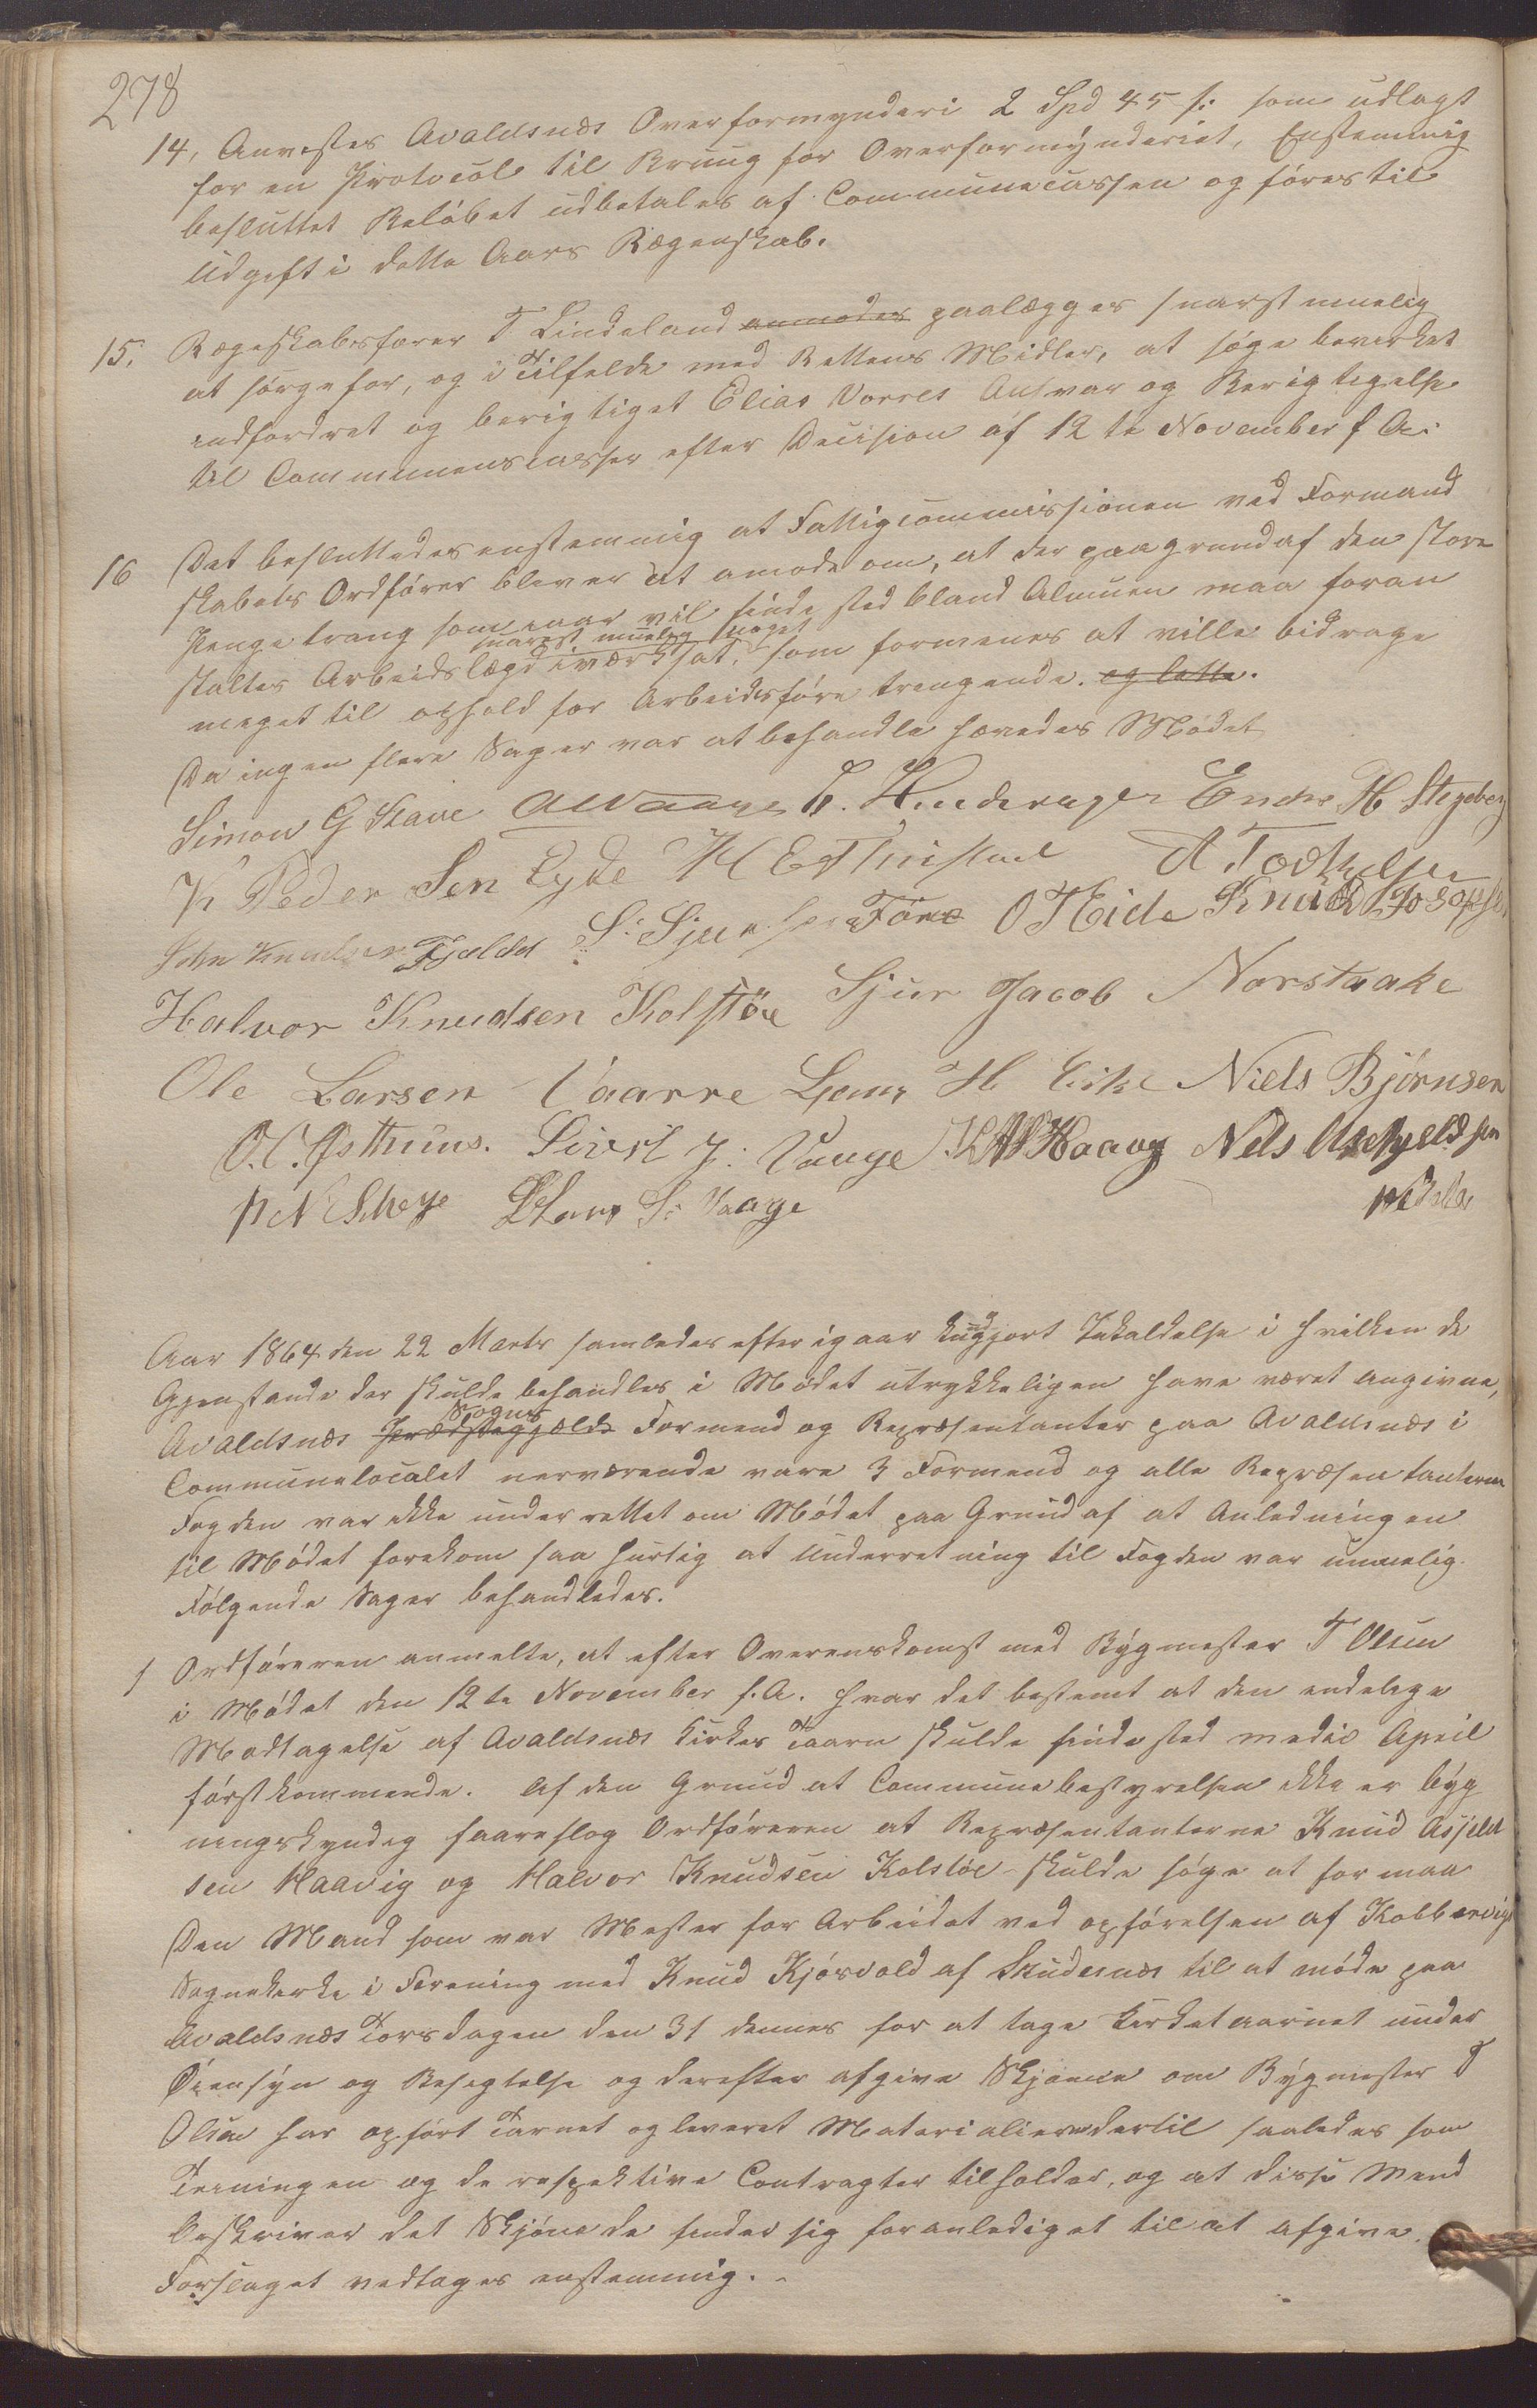 278
14, Anvistes Avaldsnæs Overformynderi 2 Spd 45 s: som udlagt
for en Protocol til Brug for Overformynderiet, Enstemmig
besluttet Beløbet udbetales af Communecassen og føres til
Udgift i dette Aars Regenskab.
15. Regeskabsfører T. Lindeland anmodes paalægges snarest muelig
at sørge for, og i Tilfelde med Rettens Midler, at søge bevirket
indfordret og berigtiget Elias Vorres Ansvar og Berigtigelse
til Communenscasse efter Decision af 12te November f A:
16 Det besluttedes enstemmig at Fattigcommissionen ved Formand
skabets Ordfører bliver at amode om, at der paa grund af den store
Penge trang som naar vil finde sted bland Almuen maa foran
snarest muelig noget
staltes Arbeidslægd iværksat, som formenes at ville bidrage
meget til ophold for Arbeidsføre trengende. og lette.
Da ingen flere Sager var at behandle hævedes Mødet
Simon G Stave AWaage Endre H Stegeberg
K Peder Sen Eyde
John Knudsen Fjeldd S. Sjursen Føre O T Eide Knud Josepsen
Halvor Knudsen Kolstöe Sjur Jacob Norstaake
Ole Larsen Vaarre H Eike Niels Björnsen
O. C. Østhuus. Sivert J. Vaage Haavig Nels
P N Scheye S: Vaage
Aar 1864 den 22 Marts samledes efter igaar kundgjort Inkaldelse i hvilken de
Gjenstande der skulde behandles i Mødet utrykkeligen have været angivne,
Sogns
Avaldsnæs Præstegjelds Formend og Representanter paa Avaldsnæs i
Communelocalet nerværende vare 3 Formend og alle Repræsentanterne
Fogden var ikke underrettet om Mødet paa Grund af at Anledningen
til Mødet forekom saa hurtig at Underretning til Fogden var umuelig.
Følgende Sager behandledes.
1 Ordføreren anmelte, at efter Overenskomst med Bygmester T Olsen
i Mødet den 12te November f. A. hvar det bestemt at den endelige
Modtagelse af Avaldsnæs Kirkes Taarn skulde finde sted medio April
førstkommende. Af den Grund at Communebestyrelsen ikke er byg
ningskyndig foareslog Ordføreren at Repræsentanterne Knud Asjeld
sen Haavig og Halvor Knudsen Kolstöe skulde søge at formaa
Den Mand som var Mester for Arbeidet ved opførelsen af Kobbervigs
Sognekirke i Forening med Knud Kjøsvold af Skudesnæs til at møde paa
Avaldsnæs Torsdagen den 31 dennes for at tage Kirketaarnet under
Øiensyn og Besigtelse og derefter afgive Skjønne om Bygmester T
Olsen har opført Tarnet og leveret Materialierne dertil saaledes som
Teiningen og de respektive Contragter tilholder, og at disse Mend
beskriver det Skjønne de finder sig foranlediget til at afgive.
Forslaget vedtages enstemmig. -